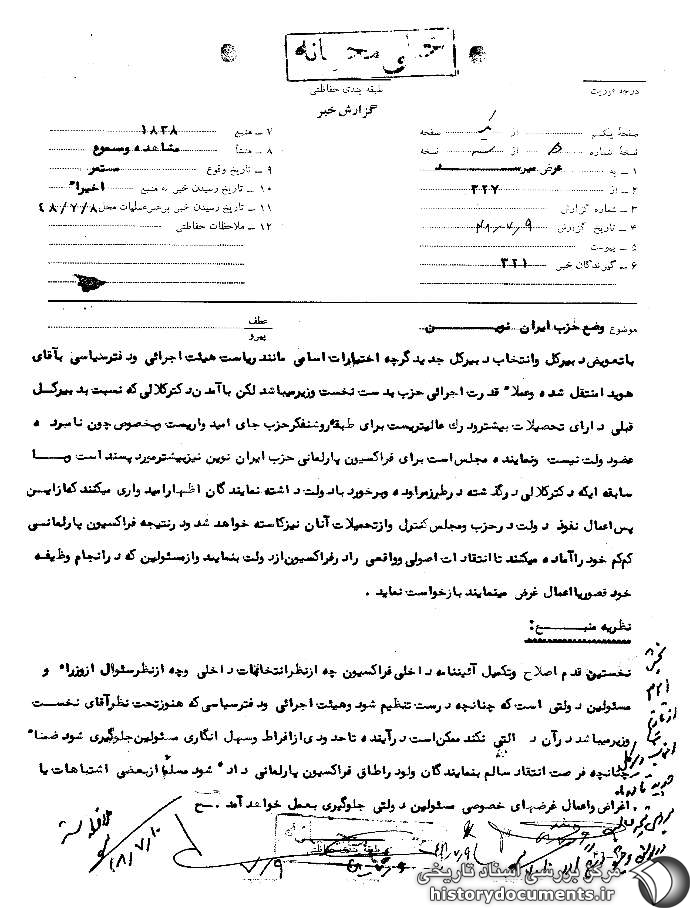 خیلی محرمانه
درجه فوریت
طبقه بندی حفاظتی
گزارش خبر
صفحهٔ یکم از یک صفحه
نسخهٔ شماره ۵ از نسخه
۱ – به عرض میرسد
۲ – از ۳۲۷
۳ – شماره گزارش
۴ – تاریخ گزارش ۴۸٫۷٫۹
۵ – پیوست
۶ – گیرندگان خبر ۳۲۱
۷ – منبع ۱۸۳۸
۸ – منشأ مشاهده ومسموع
۹ – تاریخ وقوع مستمر
۱۰ – تاریخ رسیدن خبر به منبع اخیراً
۱۱ – تاریخ رسیدن خبر برهبرعملیات محل ۴۸/۷/۸
۱۲ – ملاحظات حفاظتی
موضوع وضع حزب ایران نوین
عطف
پیرو
باتعویض دبیرکل وانتخاب دبیرکل جدید گرچه اختیارات اساسی مانند ریاست هیئت اجرائی ودفترسیاسی بآقای
هویدا منتقل شده وعملاً قدرت اجرائی حزب بدست نخست وزیرمیباشد لکن باآمدن دکترکلالی که نسبت بدبیرکل
قبلی دارای تحصیلات بیشترودرک عالیتریست برای طبقهٔ روشنفکرحزب جای امیدواریست وبخصوص چون نامبرده
عضودولت نیست ونماینده مجلس است برای فراکسیون پارلمانی حزب ایران نوین نیزبیشترمورد پسند است وبا
سابقه ایکه دکترکلالی درگذشته درطرزمراوده وبرخورد بادولت داشته نمایندگان اظهارامیدواری میکنند که ازاین
پس اعمال نفوذ دولت درحزب ومجلس کنترل وازتحمیلات آنان نیزکاسته خواهد شد ودرنتیجه فراکسیون پارلمانی
کم کم خود راآماده میکنند تاانتقادات اصولی وواقعی رادرفراکسیون ازدولت بنمایند وازمسئولین که درانجام وظیفه
خود قصوریااعمال غرض مینمایند بازخواست نماید .
نظریه منبع:
نخستین قدم اصلاح وتکمیل آئیننامه داخلی فراکسیون چه ازنظرانتخابات داخلی وچه ازنظرسئوال ازوزراء و
مسئولین دولتی است که چنانچه درست تنظیم شود وهیئت اجرائی ودفترسیاسی که هنوزتحت نظرآقای نخست
وزیرمیباشد درآن دخالتی نکند ممکن است درآینده تاحدودی ازافراط وسهل انگاری مسئولین جلوگیری شود ضمناً
چنانچه فرصت انتقاد سالم بنمایندگان ولودراطاق فراکسیون پارلمانی داده شود مسلماً ازبعضی اشتباهات یا
اغراض واعمال غرضهای خصوصی مسئولین دولتی جلوگیری بعمل خواهد آمد . ح
ملاحظه شد
۴۸/۷/۱۰
۷/۹
۴۸/۷/۹
بخش
مرکز بررسی اسناد تاریخی
historydocuments.ir